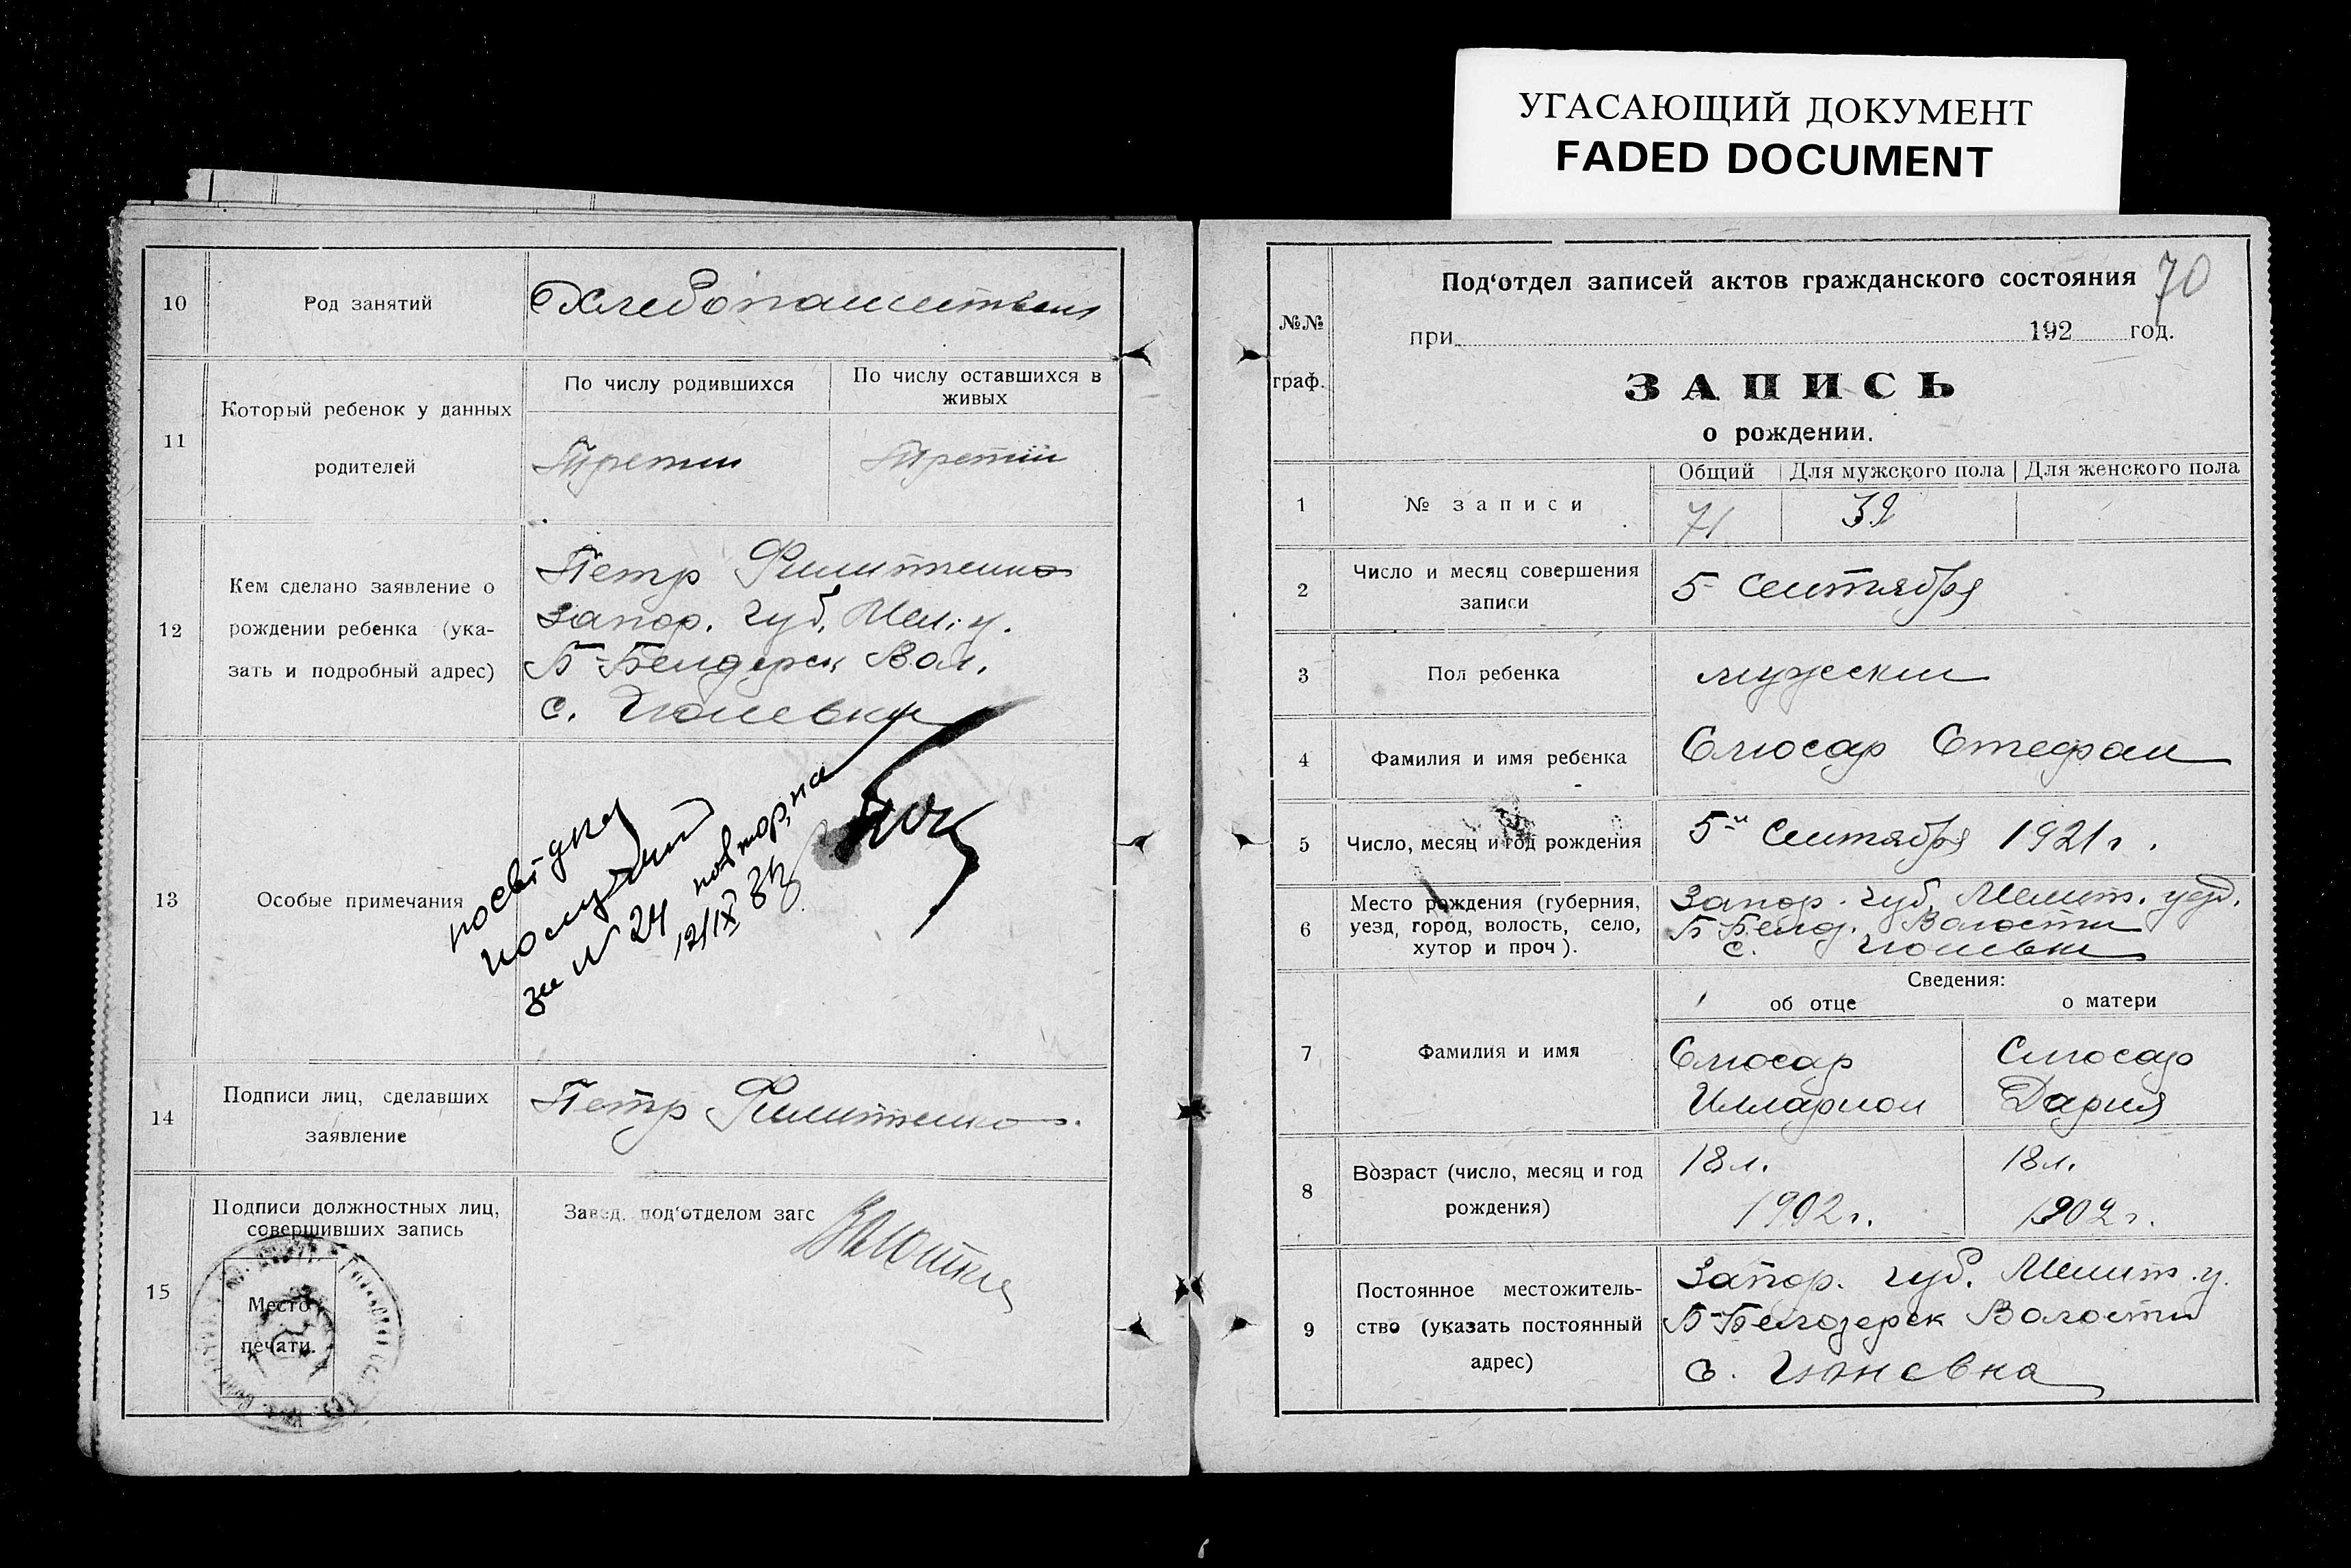 УГАСАЮЩИЙ ДОКУМЕНТ
FADED DOCUMENT
10
Род занятий
Хлебопашеством
11
Который ребенок у данных
родителей
По числу родившихся
По числу оставшихся в
живых
Третий
Третій
12
Кем сделано заявление о
рождении ребенка (ука-
зать и подробный адрес)
Петр Филипенко
Запор. губ. Мел. у.
Б-Белозерск Вол.
с. Гюневки
13
Особые примечания
посвідка
за № 24 повторна
12/IX
14
Подписи лиц, сделавших
заявление
Петр Филипенко.
15
Подписи должностных лиц,
совершивших запись
Место
печати.
Завед. под'отделом загс
№№
граф.
Под'отдел записей актов гражданского состояния
70
при 192 год.
ЗАПИСЬ
о рождении.
1
№ записи
Общий Для мужского пола Для женского пола
71 39
2
Число и месяц совершения
записи
5 Сентября
3
Пол ребенка
мужский
4
Фамилия и имя ребенка
Слюсар Стефан
5
Число, месяц и год рождения
5го Сентября 1921 г.
6
Место рождения (губерния,
уезд, город, волость, село,
хутор и проч).
Запор. губ. Мелит. уезд.
Б Белоз. Волости
с. Гюневки
Сведения:
об отце о матери
7
Фамилия и имя
Слюсар
Илларион
Слюсар
Дария
8
Возраст (число, месяц и год
рождения)
18 л.
1902 г.
18 л.
1902 г.
9
Постоянное местожитель-
ство (указать постоянный
адрес)
Запор. губ. Мелит. у.
Б-Белозерск Волости
с. Гюневка